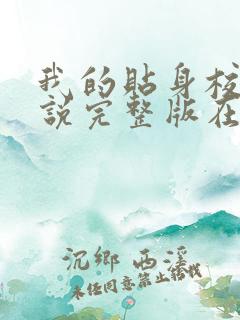 我的貼身校
說完整版在
沉鄉 西溪
未經同意禁止轉載